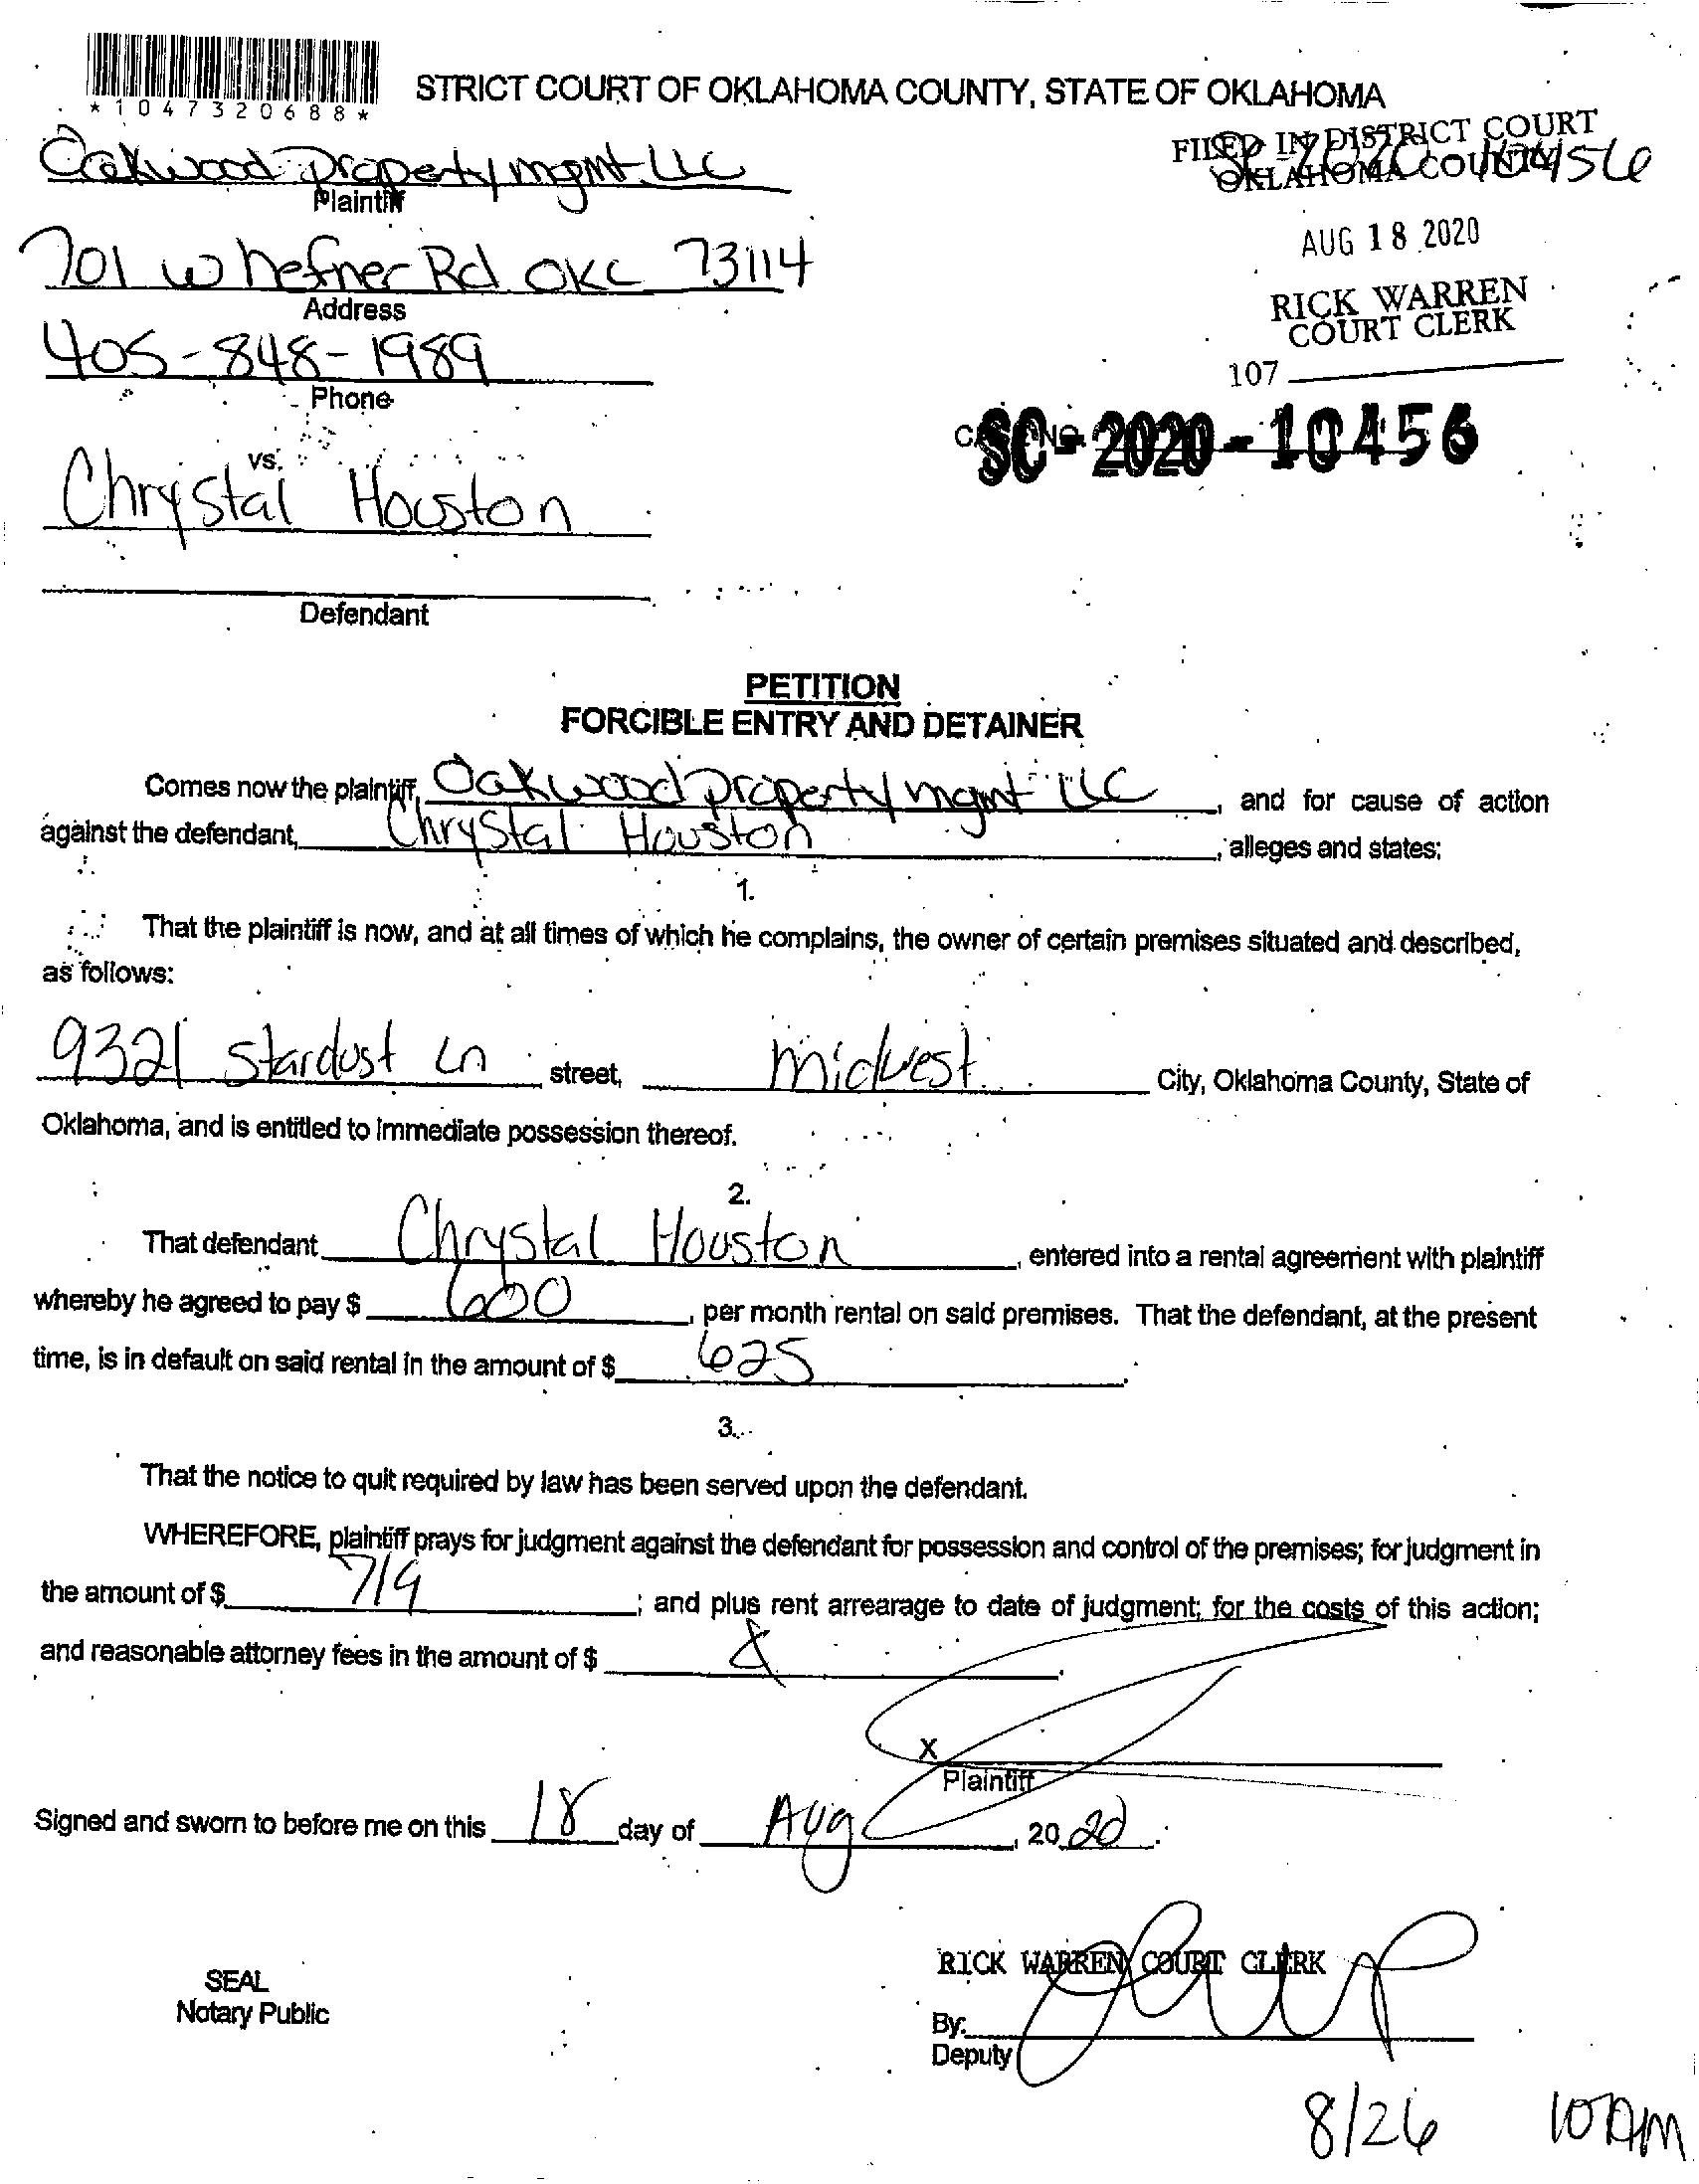 *1047320688*
STRICT COURT OF OKLAHOMA COUNTY, STATE OF OKLAHOMA
FILED IN DISTRICT COURT
OKLAHOMA COUNTY
Oakwood property mgmt LLC
Plaintiff
AUG 18 2020
701 w hefner Rd OKC 73114
Address
RICK WARREN
COURT CLERK
405-848-1989
Phone
107
SC-2020-10456
vs.
Chrystal Houston
Defendant
PETITION
FORCIBLE ENTRY AND DETAINER
Comes now the plaintiff, Oakwood property mgmt LLC, and for cause of action
against the defendant, Chrystal Houston, alleges and states:
1.
That the plaintiff is now, and at all times of which he complains, the owner of certain premises situated and described,
as follows:
9321 Stardust Ln street, midwest City, Oklahoma County, State of
Oklahoma, and is entitled to immediate possession thereof.
2.
That defendant Chrystal Houston, entered into a rental agreement with plaintiff
whereby he agreed to pay $ 600, per month rental on said premises. That the defendant, at the present
time, is in default on said rental in the amount of $ 625.
3.
That the notice to quit required by law has been served upon the defendant.
WHEREFORE, plaintiff prays for judgment against the defendant for possession and control of the premises; for judgment in
the amount of $ 719; and plus rent arrearage to date of judgment; for the costs of this action;
and reasonable attorney fees in the amount of $
X
Plaintiff
Signed and sworn to before me on this 18 day of Aug, 2020.
RICK WARREN COURT CLERK
SEAL
Notary Public
By:
Deputy
8/26 10AM